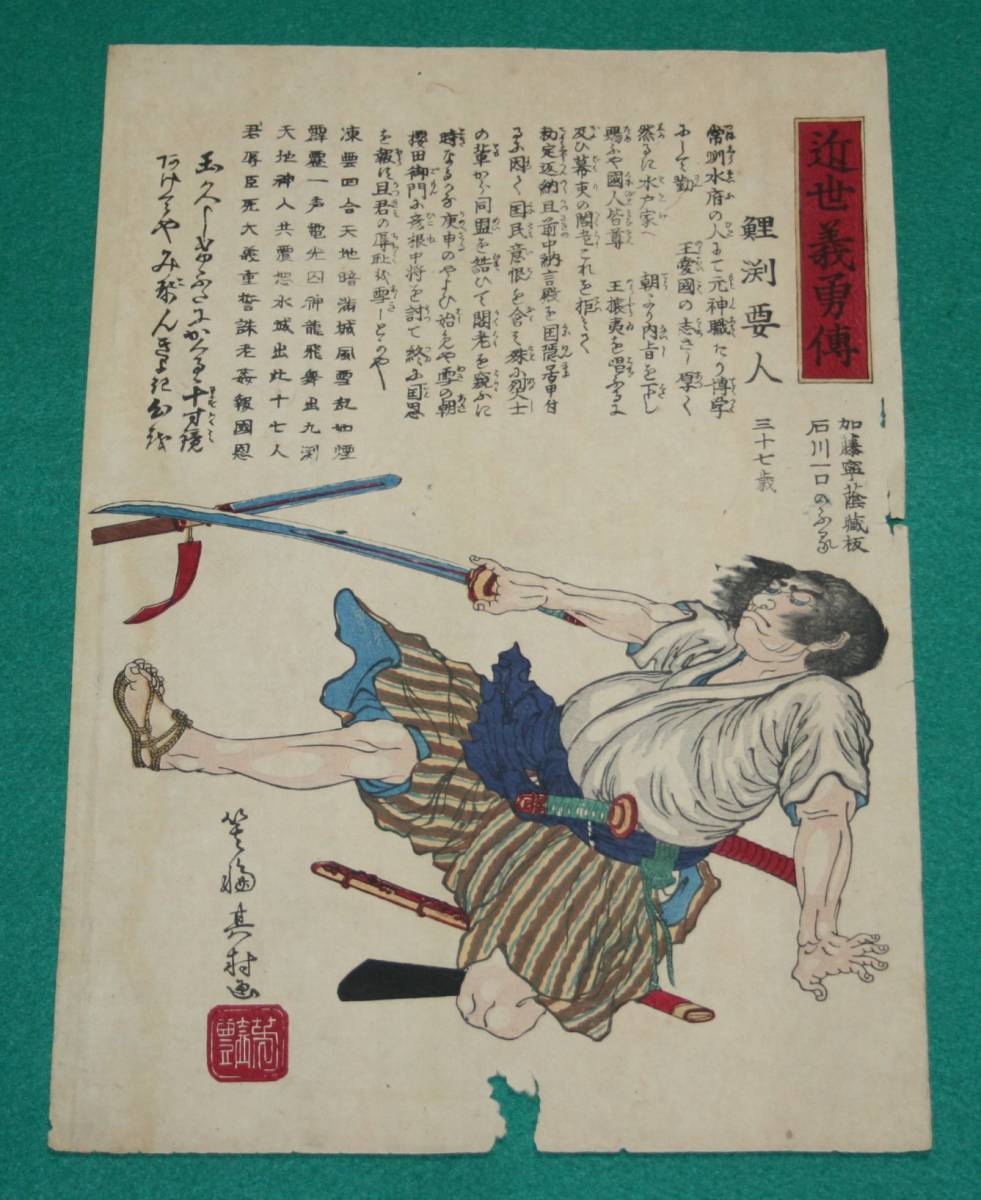 近世義勇傳
加藤寧蔭藏板
石川一口のぶる
鯉渕要人
三十七歳
常州水府の人にて元神職たり博学
にして勤 王愛國の志さし厚く
然るに水戸家へ 朝より内旨を下し
賜ふや國人皆尊 王攘夷を唱ふるに
及び幕吏の閣老これを拒みて
勅定返納且前中納言殿を因隠居申付
るに因て国民意恨を含み殊に烈士
の輩から同盟を詰ひて閣老を窺ふに
時なるかな庚申のやよひ始めや雪の朝
櫻田御門に彦根中将を討て終に国恩
を報じ且君の辱恥を雪ーとかや
凍雲四合天地暗満城風雪乱如煙
霹靂一声電光囚神龍飛舞出九渕
天地神人共震怒水城出此十七人
君辱臣死大義重誓誅老姦報國恩
十寸鏡
笑福其村画